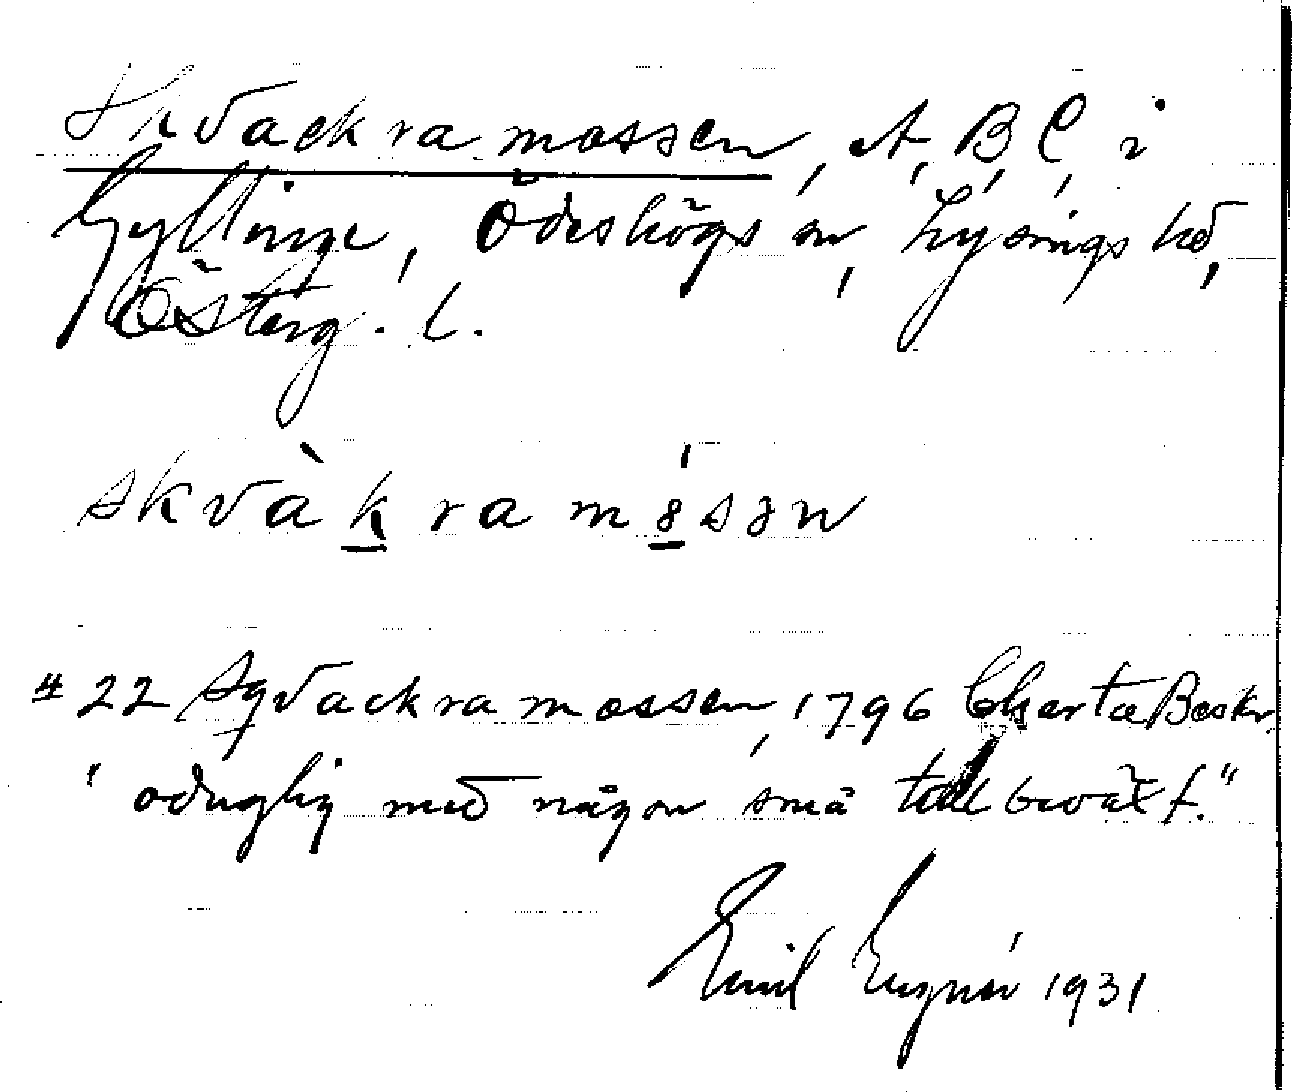 Skvackramossen, A, B, C, i
Gyttinge, Ödeshögs sn, Lysings hd,
Österg. l.
skvàkramósən
# 22 Sqvackramossen, 1796 Charta Beskr.
" oduglig med någon små tallbewäxt."
Emil 1931